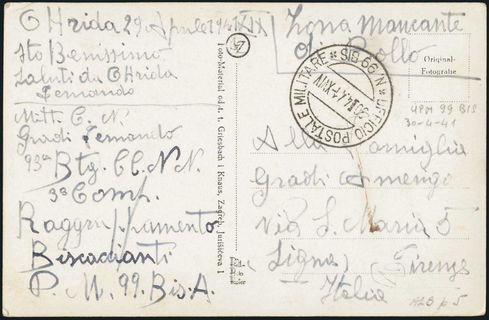 OHrida 29 Aprile 1941 XIX
Sto Benissimo
Saluti da OHrida
Fernando
Mitt. C. N.
Gradi Fernando
93° Btg. CC. N. N.
3° Comp.
Raggruppamento
Biscaccianti
P. M. 99. Bis. A.
Foto-Material od d. d. Griesbach i Knaus, Zagreb, Jurišićeva 1
Zona Mancante
di Bollo
Original-
Fotografie
UFFICIO POSTALE MILITARE
30.4.41.XIX
UPM 99 BIS
30-4-41
Alla Famiglia
Gradi Amerigo
Via S. Maria 5
Signa
Firenze
Italia
p 5